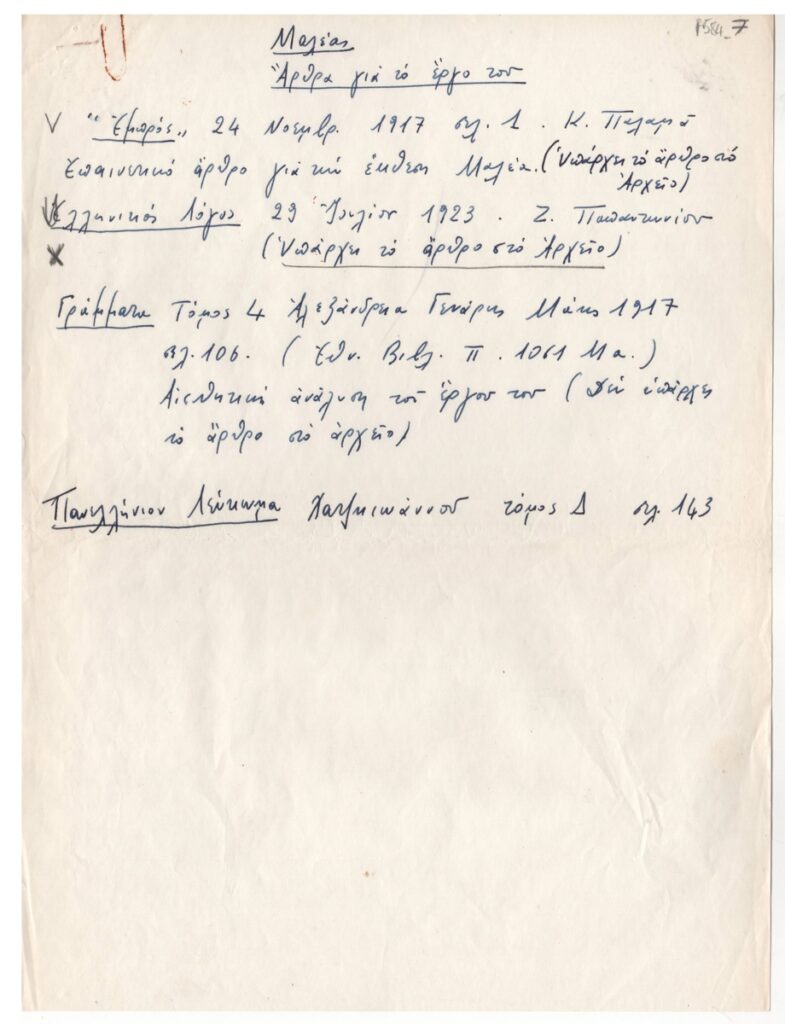 1584_7
Μαλέας
Ἄρθρα γιά τό ἔργο του
V "Ἐμπρός" 24 Νοεμβρ. 1917 σελ. 1. Κ. Παλαμᾶ
Ἐπαινετικό ἄρθρο γιά τήν ἔκθεση Μαλέα. (Ὑπάρχει τό ἄρθρο στό
Ἀρχεῖο)
Ἑλληνικός Λόγος 29 Ἰουλίου 1923. Ζ. Παπαντωνίου
X (Ὑπάρχει τό ἄρθρο στό Ἀρχεῖο)
Γράμματα Τόμος 4 Ἀλεξάνδρεια Γενάρης Μάης 1917
σελ. 106. (Ἐθν. Βιβλ. Π. 1061 Μα.)
Αἰσθητική ἀνάλυση τοῦ ἔργου του (Δέν ὑπάρχει
τό ἄρθρο στό ἀρχεῖο)
Πανελλήνιον Λεύκωμα Χατζηιωάννου τόμος Δ σελ. 143